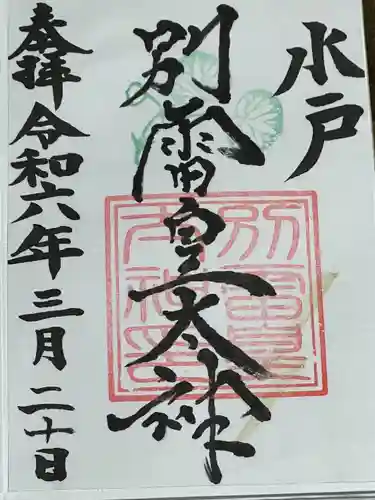 水戸
別雷皇太神
奉拝 令和六年三月二十日
別雷皇太神印